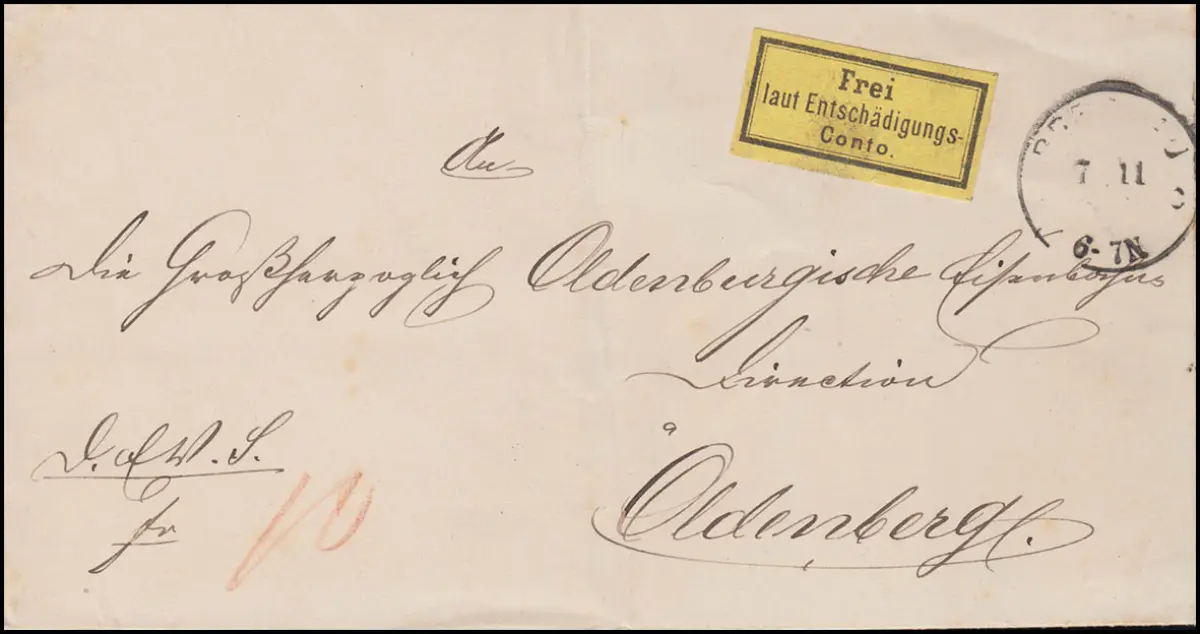 Frei
laut Entschädigungs-
Conto.
7 11
6-7N
An
Die Großherzoglich Oldenburgische Eisenbahn
Direction
a
Oldenberg.
D. E W. S.
fr
10